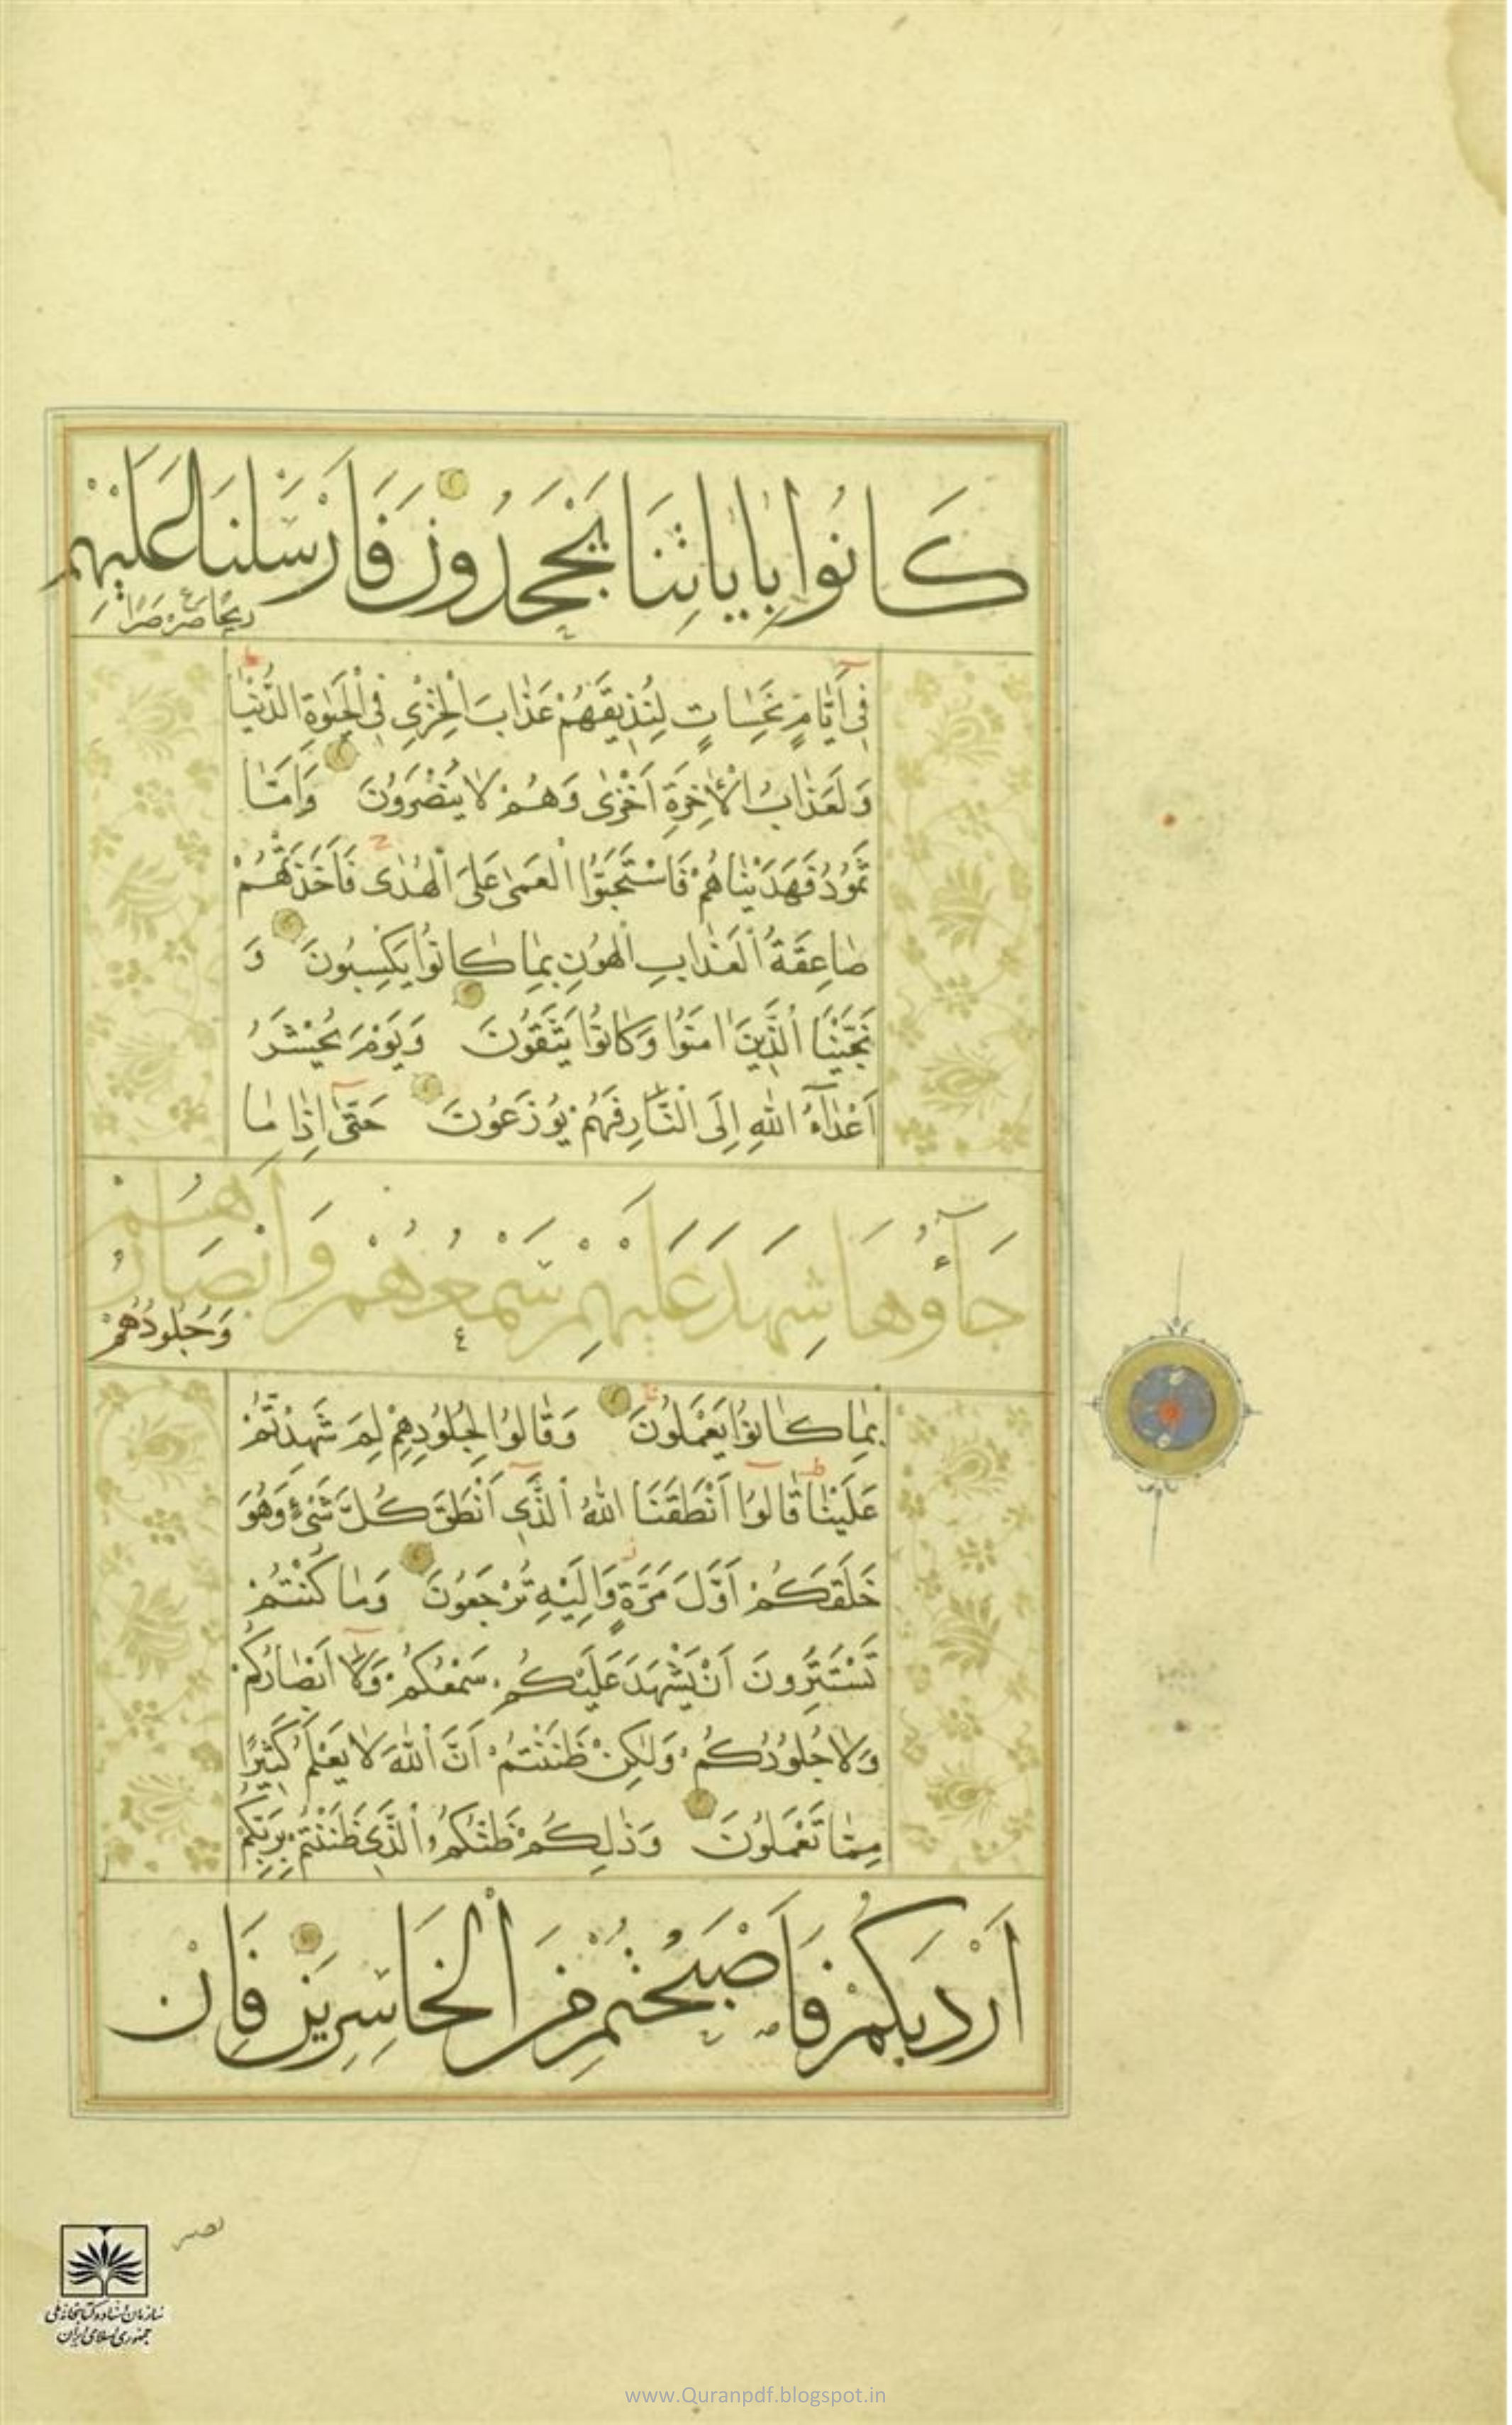 كَانُوا بِاٰيَاتِنَا يَجْحَدُونَ فَاَرْسَلْنَا عَلَيْهِمْ
رِيحًا صَرْصَرًا
فِي اَيَّامٍ نَحِسَاتٍ لِنُذِيقَهُمْ عَذَابَ الْخِزْيِ فِي الْحَيٰوةِ الدُّنْيَا
وَلَعَذَابُ الْاٰخِرَةِ اَخْزٰى وَهُمْ لَا يُنْصَرُونَ وَاَمَّا
ثَمُودُ فَهَدَيْنَاهُمْ فَاسْتَحَبُّوا الْعَمٰى عَلَى الْهُدٰى فَاَخَذَتْهُمْ
صَاعِقَةُ الْعَذَابِ الْهُونِ بِمَا كَانُوا يَكْسِبُونَ وَ
نَجَّيْنَا الَّذِينَ اٰمَنُوا وَكَانُوا يَتَّقُونَ وَيَوْمَ يُحْشَرُ
اَعْدَآءُ اللّٰهِ اِلَى النَّارِ فَهُمْ يُوزَعُونَ حَتّٰى اِذَا مَا
جَآؤُهَا شَهِدَ عَلَيْهِمْ سَمْعُهُمْ وَاَبْصَارُهُمْ
وَجُلُودُهُمْ
بِمَا كَانُوا يَعْمَلُونَ وَقَالُوا لِجُلُودِهِمْ لِمَ شَهِدْتُمْ
عَلَيْنَا قَالُوا اَنْطَقَنَا اللّٰهُ الَّذِي اَنْطَقَ كُلَّ شَيْءٍ وَهُوَ
خَلَقَكُمْ اَوَّلَ مَرَّةٍ وَاِلَيْهِ تُرْجَعُونَ وَمَا كُنْتُمْ
تَسْتَتِرُونَ اَنْ يَشْهَدَ عَلَيْكُمْ سَمْعُكُمْ وَلَا اَبْصَارُكُمْ
وَلَا جُلُودُكُمْ وَلٰكِنْ ظَنَنْتُمْ اَنَّ اللّٰهَ لَا يَعْلَمُ كَثِيرًا
مِمَّا تَعْمَلُونَ وَذٰلِكُمْ ظَنُّكُمُ الَّذِي ظَنَنْتُمْ بِرَبِّكُمْ
اَرْدٰيكُمْ فَاَصْبَحْتُمْ مِنَ الْخَاسِرِينَ فَاِنْ
يصبر
سازمان اسناد و کتابخانه ملی
جمهوری اسلامی ایران
www.Quranpdf.blogspot.in